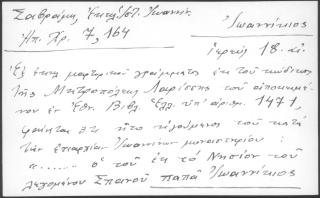 Σαβράμη, Ἐκκλ. Ἰωανν.
Ἠπ. Χρ. 7, 164
Ἰωαννίκιος
ἱερεύς 18. αἰ.
Ἐξ ἑνός μαρτυρικοῦ γράμματος ἐκ τοῦ κώδικος
τῆς Μητροπόλεως Λαρίσσης τοῦ ἀποκειμέ-
νου ἐν Ἐθν. Βιβλ. Ἑλλ. ὑπ' ἀριθμ. 1471,
φαίνεται ὅτι ἦτο ἡγούμενος τοῦ κατά
τήν ἐπαρχίαν Ἰωαννίνων μοναστηρίου:
"....... ὁ τοῦ ἐκ τό Νησίον τοῦ
λεγομένου Σπανοῦ παπᾶ Ἰωαννίκιος